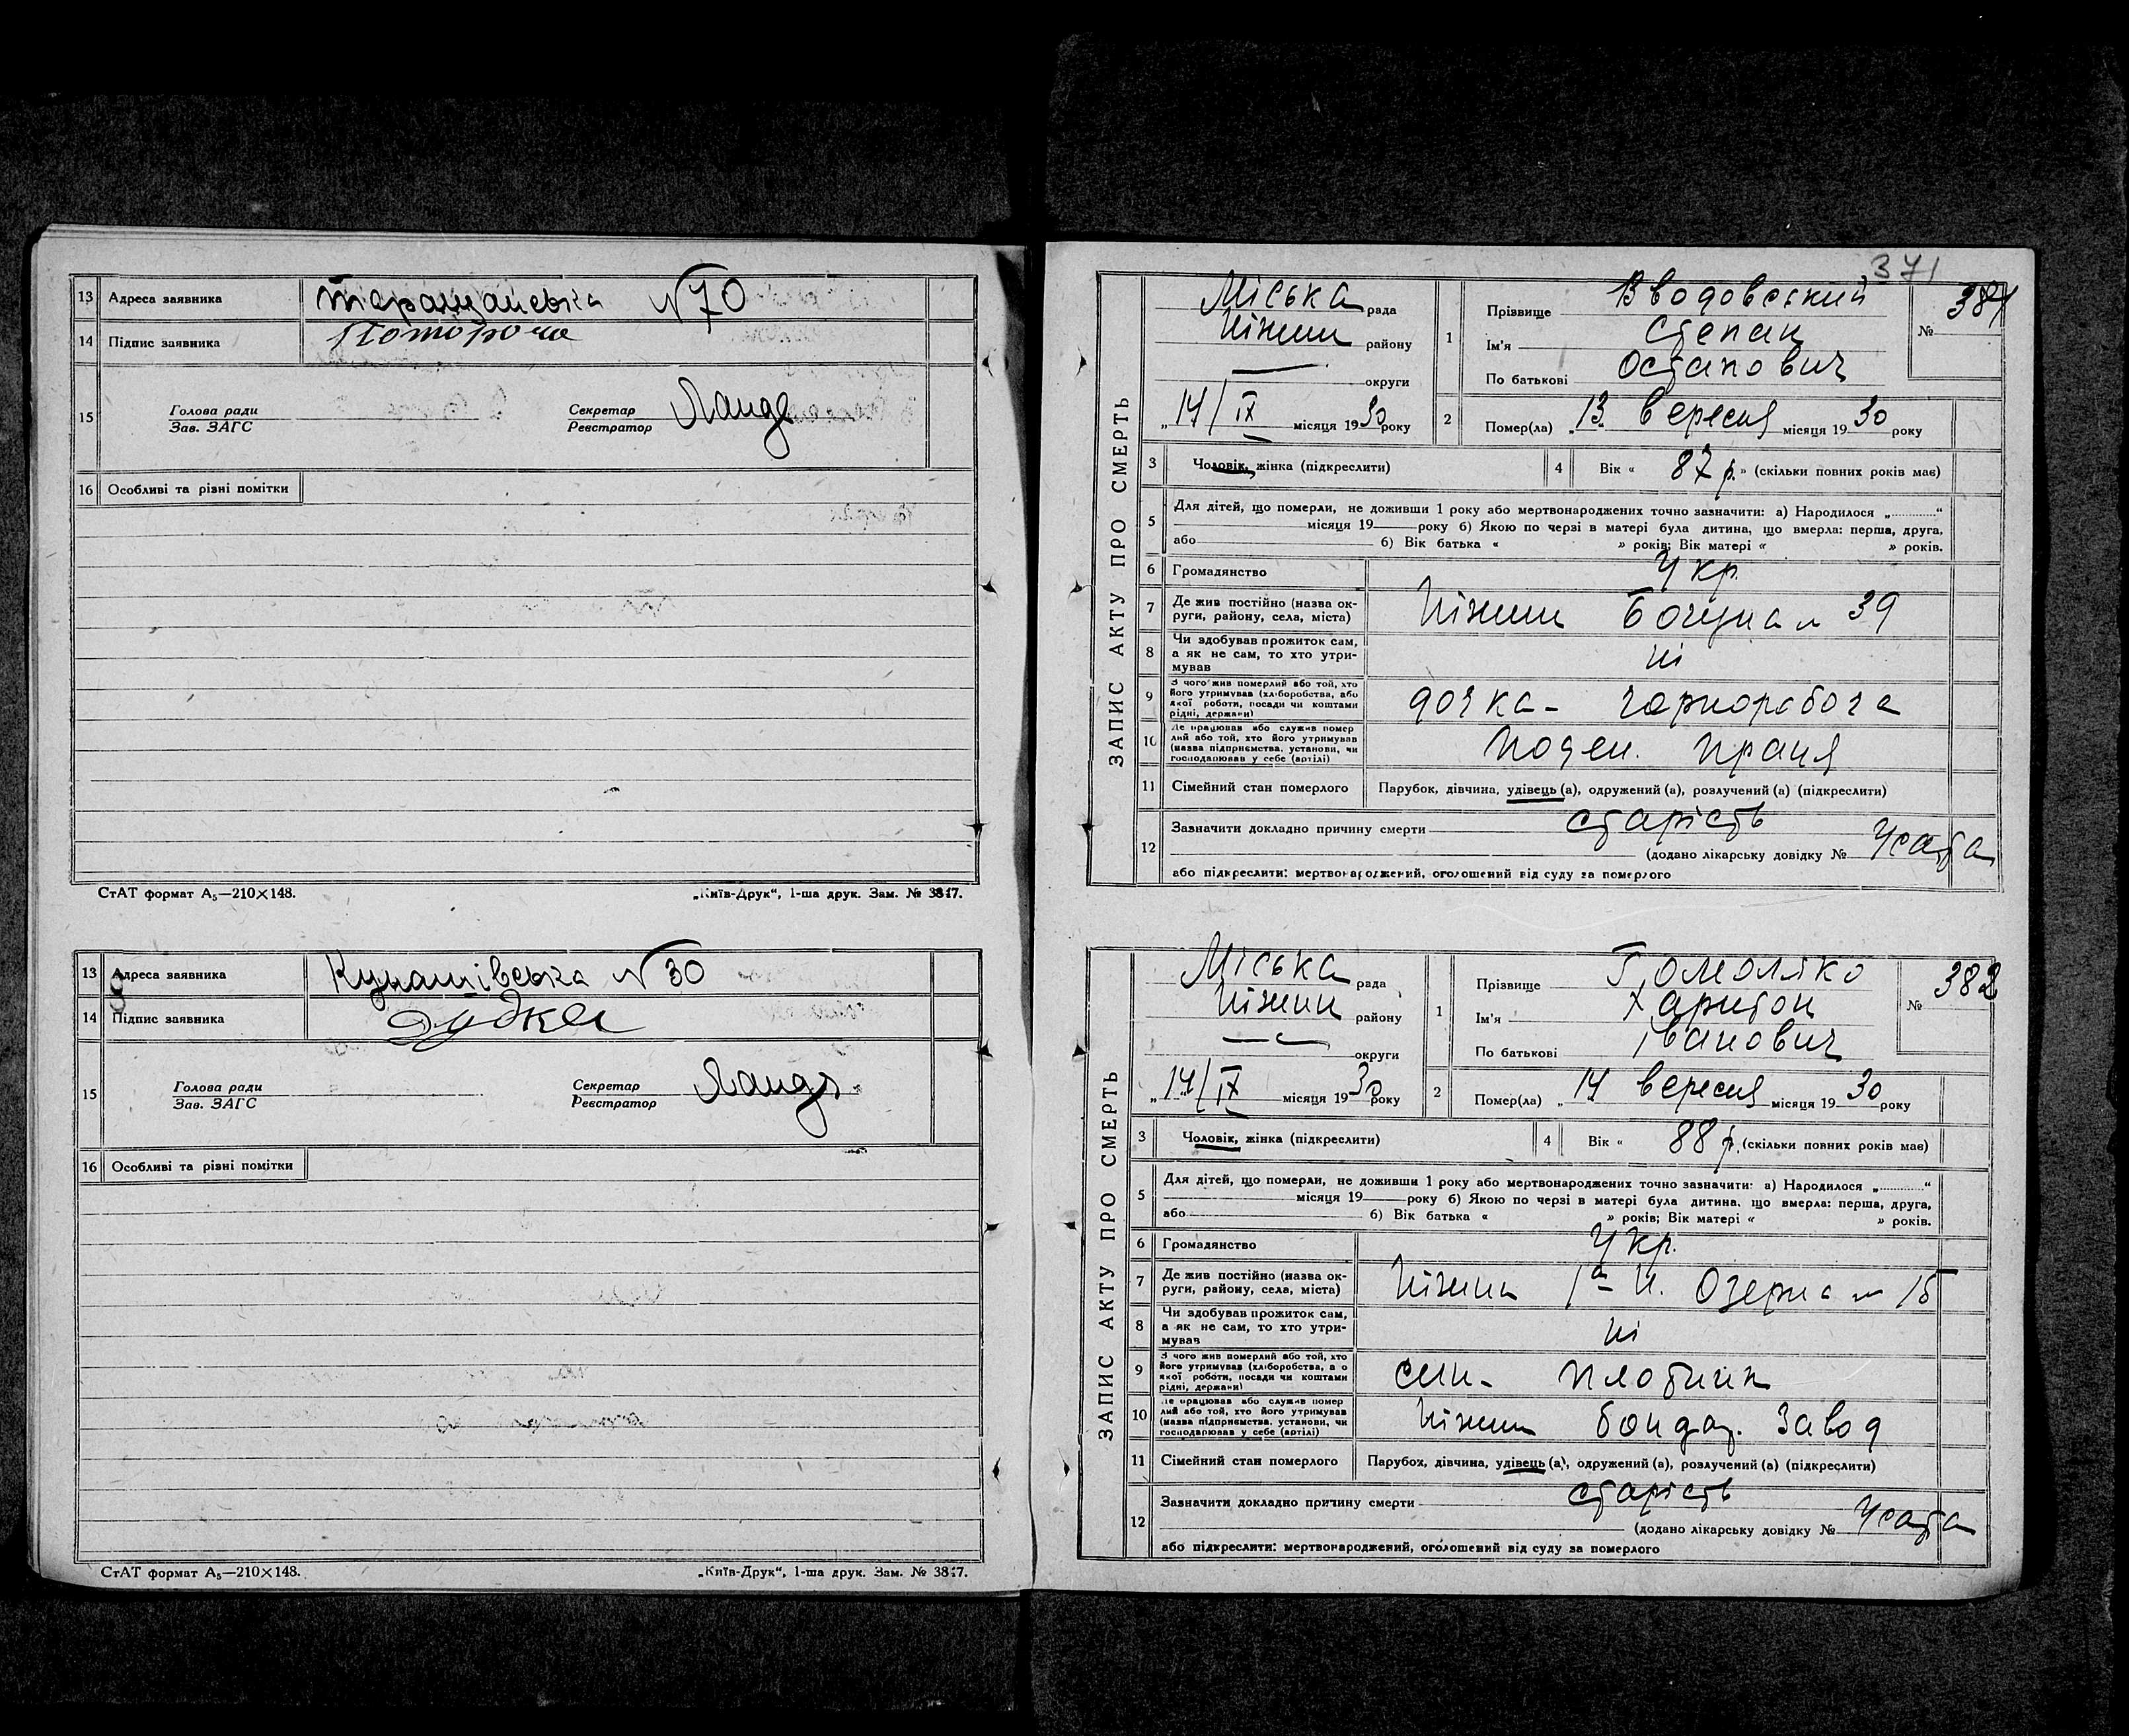 13 Адреса заявника Таращанська №70
14 Підпис заявника Поторочa
15 Голова ради Зав. ЗАГС Секретар Реєстратор Ланда
16 Особливі та різні помітки
СтАТ формат А₅—210×148. „Київ-Друк“, 1-ша друк. Зам. № 3847.
13 Адреса заявника Кунашівська №30
14 Підпис заявника Дудка
15 Голова ради Зав. ЗАГС Секретар Реєстратор Ланда
16 Особливі та різні помітки
СтАТ формат А₅—210×148. „Київ-Друк“, 1-ша друк. Зам. № 3847.
371
ЗАПИС АКТУ ПРО СМЕРТЬ
Міська рада
Ніжин району
округи
„14/IX місяця 1930 року
1 Прізвище Вводовський
Ім'я Степан
По батькові Остапович
№ 381
2 Помер(ла) „13“ вересня місяця 1930 року
3 Чоловік, жінка (підкреслити) 4 Вік « 87 р. » (скільки повних років має)
5 Для дітей, що померли, не доживши 1 року або мертвонароджених точно зазначити: а) Народилося „............“
місяця 19 року б) Якою по черзі в матері була дитина, що вмерла: перша, друга,
або б) Вік батька « » років; Вік матері « » років.
6 Громадянство Укр.
7 Де жив постійно (назва округи, району, села, міста) Ніжин 39
8 Чи здобував прожиток сам, а як не сам, то хто утримував ні
9 З чого жив померлий або той, хто його утримував (хліборобства, або якої роботи, посади чи коштами рідні, держави) дочка - чорноробоча
10 Де працював або служив померлий або той, хто його утримував (назва підприємства, установи, чи господарював у себе (артілі) поден. праця
11 Сімейний стан померлого Парубок, дівчина, удівець (а), одружений (а), розлучений (а) (підкреслити)
12 Зазначити докладно причину смерти старість
(додано лікарську довідку № Усата
або підкреслити: мертвонароджений, оголошений від суду за померлого
ЗАПИС АКТУ ПРО СМЕРТЬ
Міська рада
Ніжин району
округи
„14/IX місяця 1930 року
1 Прізвище Гомоляко
Ім'я Харитон
По батькові Іванович
№ 382
2 Помер(ла) „14 вересня місяця 1930 року
3 Чоловік, жінка (підкреслити) 4 Вік « 88 р. (скільки повних років має)
5 Для дітей, що померли, не доживши 1 року або мертвонароджених точно зазначити: а) Народилося „............“
місяця 19 року б) Якою по черзі в матері була дитина, що вмерла: перша, друга,
або б) Вік батька « » років; Вік матері « » років.
6 Громадянство Укр.
7 Де жив постійно (назва округи, району, села, міста) Ніжин 1а Н. Озерна 15
8 Чи здобував прожиток сам, а як не сам, то хто утримував ні
9 З чого жив померлий або той, хто його утримував (хліборобства, або якої роботи, посади чи коштами рідні, держави) син - плотник
10 Де працював або служив померлий або той, хто його утримував (назва підприємства, установи, чи господарював у себе (артілі) Ніжин бондар. завод
11 Сімейний стан померлого Парубок, дівчина, удівець (а), одружений (а), розлучений (а) (підкреслити)
12 Зазначити докладно причину смерти старість
(додано лікарську довідку № Усата
або підкреслити: мертвонароджений, оголошений від суду за померлого